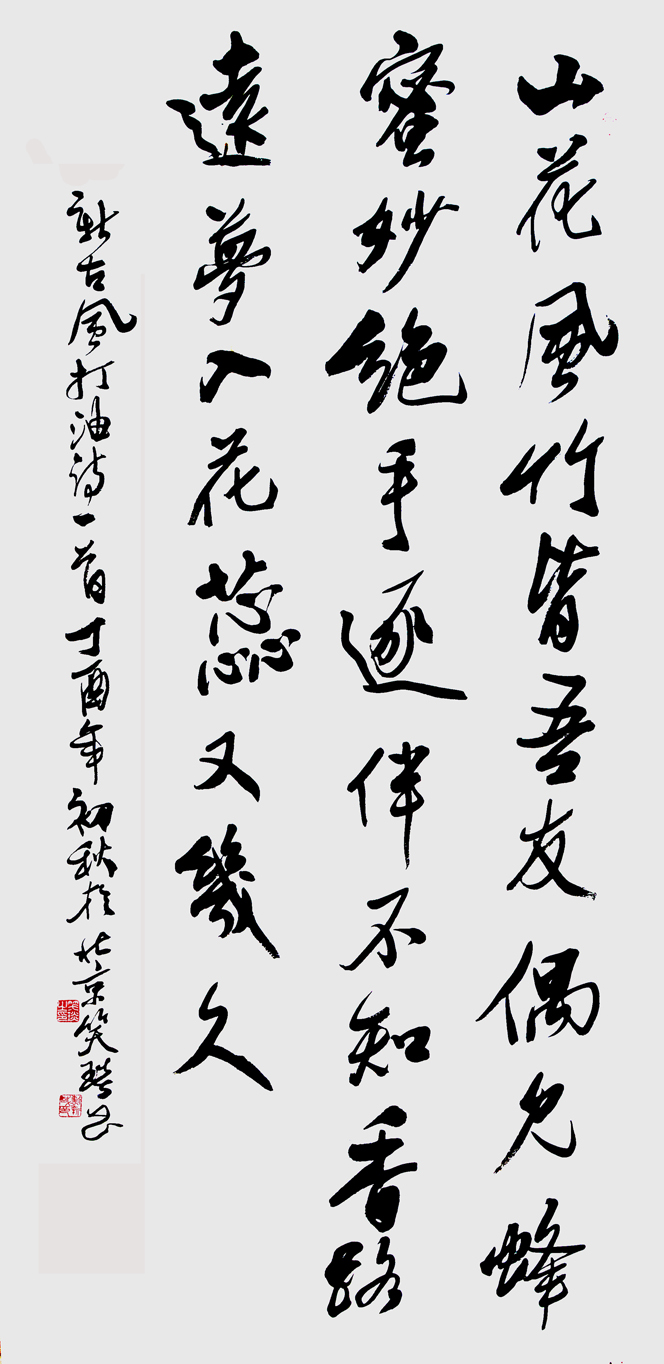 山花風竹皆吾友偶見蜂
蜜妙絶手逐伴不知香路
遠夢入花蕊又幾久
新古風打油詩一首丁酉年初秋於北京笑书